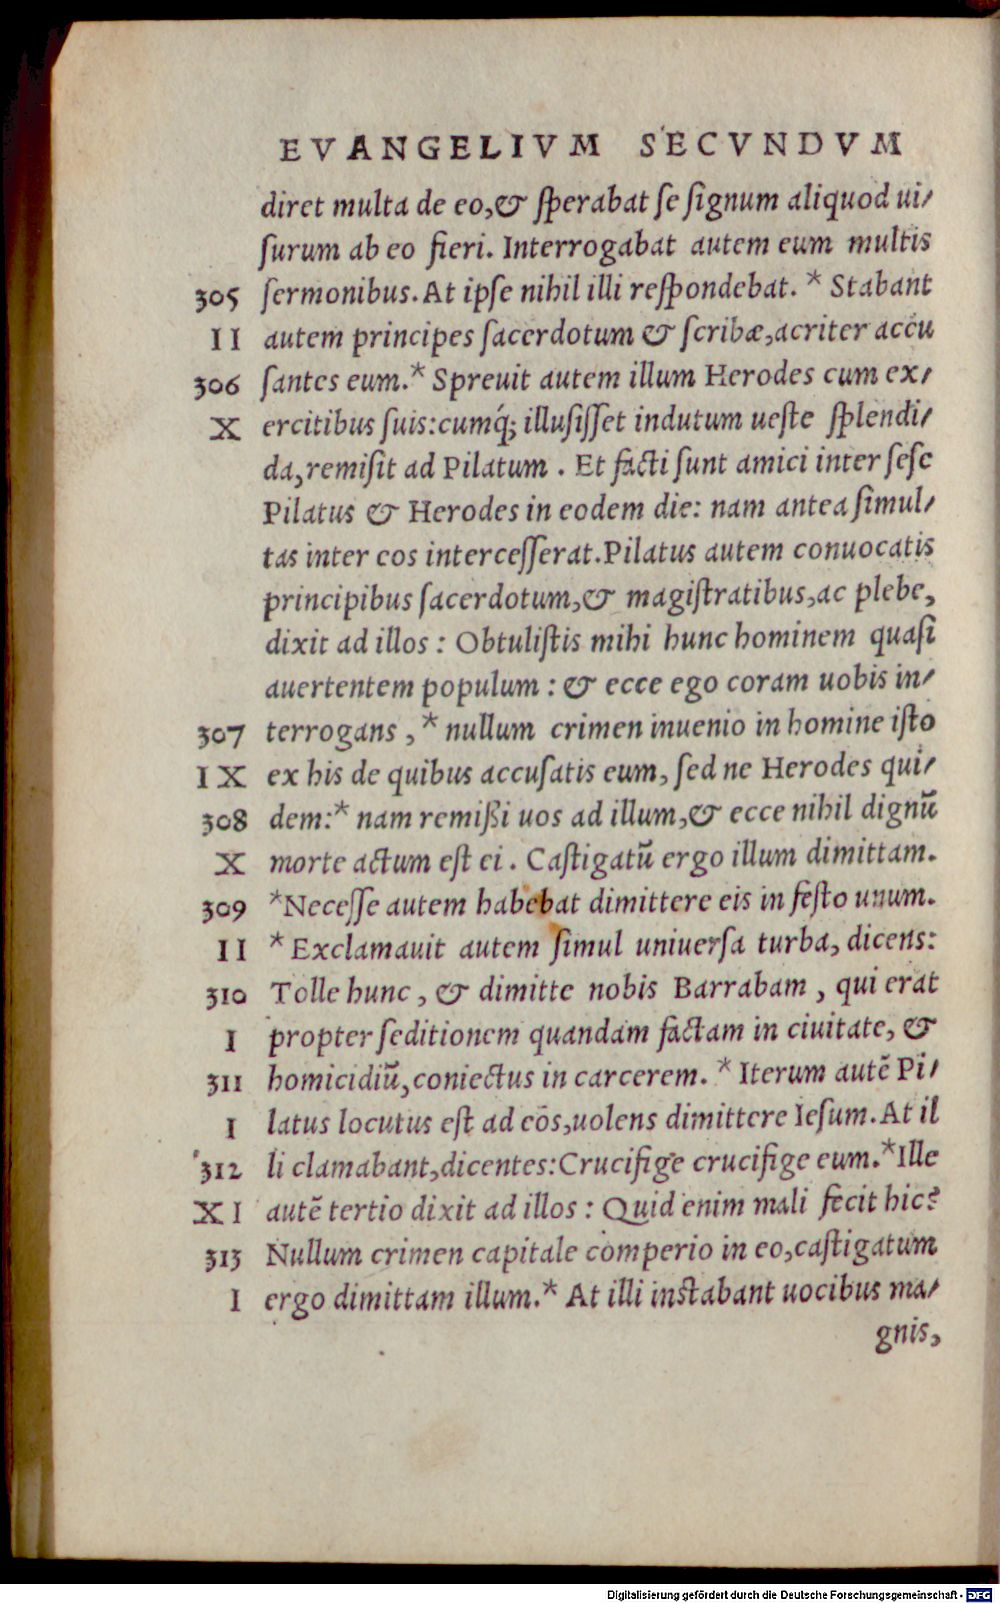 EVANGELIVM SECVNDVM
diret multa de eo,& ſperabat ſe ſignum aliquod ui/
ſurum ab eo fieri. Interrogabat autem eum multis
305 ſermonibus. At ipſe nihil illi reſpondebat. * Stabant
II autem principes ſacerdotum & ſcribæ,acriter accu
306 ſantes eum.* Spreuit autem illum Herodes cum ex/
X ercitibus ſuis:cumq́; illuſiſſet indutum ueſte ſplendi/
da,remiſit ad Pilatum . Et facti ſunt amici inter ſeſe
Pilatus & Herodes in eodem die: nam antea ſimul/
tas inter eos interceſſerat.Pilatus autem conuocatis
principibus ſacerdotum,& magiſtratibus,ac plebe,
dixit ad illos : Obtuliſtis mihi hunc hominem quaſi
auertentem populum : & ecce ego coram uobis in/
307 terrogans , * nullum crimen inuenio in homine iſto
IX ex his de quibus accuſatis eum, ſed ne Herodes qui/
308 dem:* nam remißi uos ad illum,& ecce nihil dignū
X morte actum eſt ei . Caſtigatū ergo illum dimittam.
309 *Neceſſe autem habebat dimittere eis in feſto unum.
II * Exclamauit autem ſimul uniuerſa turba, dicens:
310 Tolle hunc , & dimitte nobis Barrabam , qui erat
I propter ſeditionem quandam factam in ciuitate, &
311 homicidiū,coniectus in carcerem. * Iterum autē Pi/
I latus locutus eſt ad eos,uolens dimittere Ieſum. At il
312 li clamabant,dicentes:Crucifige crucifige eum.*Ille
XI autē tertio dixit ad illos : Quid enim mali fecit hic?
313 Nullum crimen capitale comperio in eo,caſtigatum
I ergo dimittam illum.* At illi inſtabant uocibus ma/
gnis,
Digitalisierung gefördert durch die Deutsche Forschungsgemeinschaft - DFG